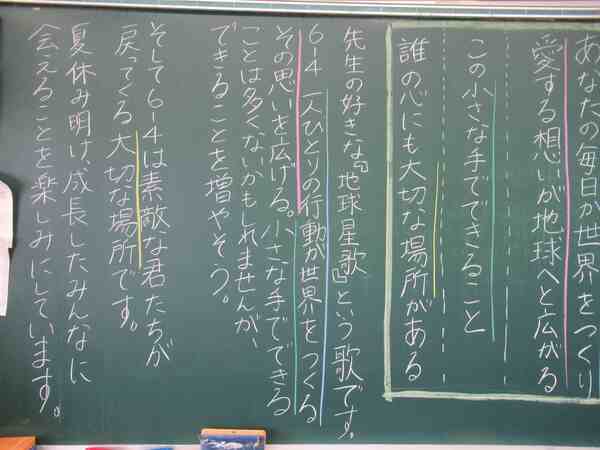 あなたの毎日が世界をつくり
愛する想いが地球へと広がる
この小さな手でできること
誰の心にも大切な場所がある
先生の好きな『地球星歌』という歌です。
6-4 一人ひとりの行動が世界をつくる
その思いを広げる。小さな手でできる
ことは多くないかもしれませんが、
できることを増やそう。
そして6-4は素敵な君たちが
戻ってくる大切な場所です。
夏休み明け、成長したみんなに
会えることを楽しみにしています。